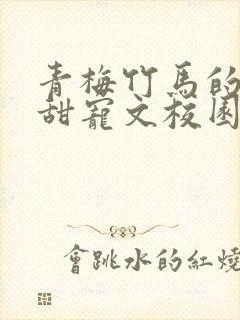 青梅竹馬的
甜寵文校園
會跳水的紅燒